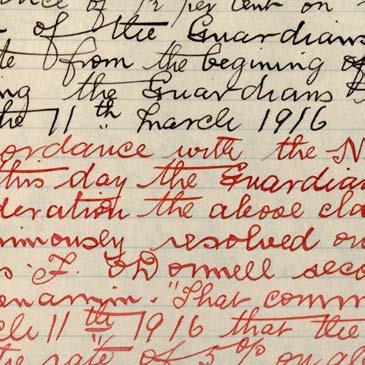 of ½ per cent on
of the Guardians
from the begining of
ng the Guardians
the 11th March 1916
ordance with the N
this day the Guardian
deration the above cla
nimously resolved on
s. J. O'Donnell seco
onamyn. "That comm
ch 11th 1916 that the
the rate of 5 % on al